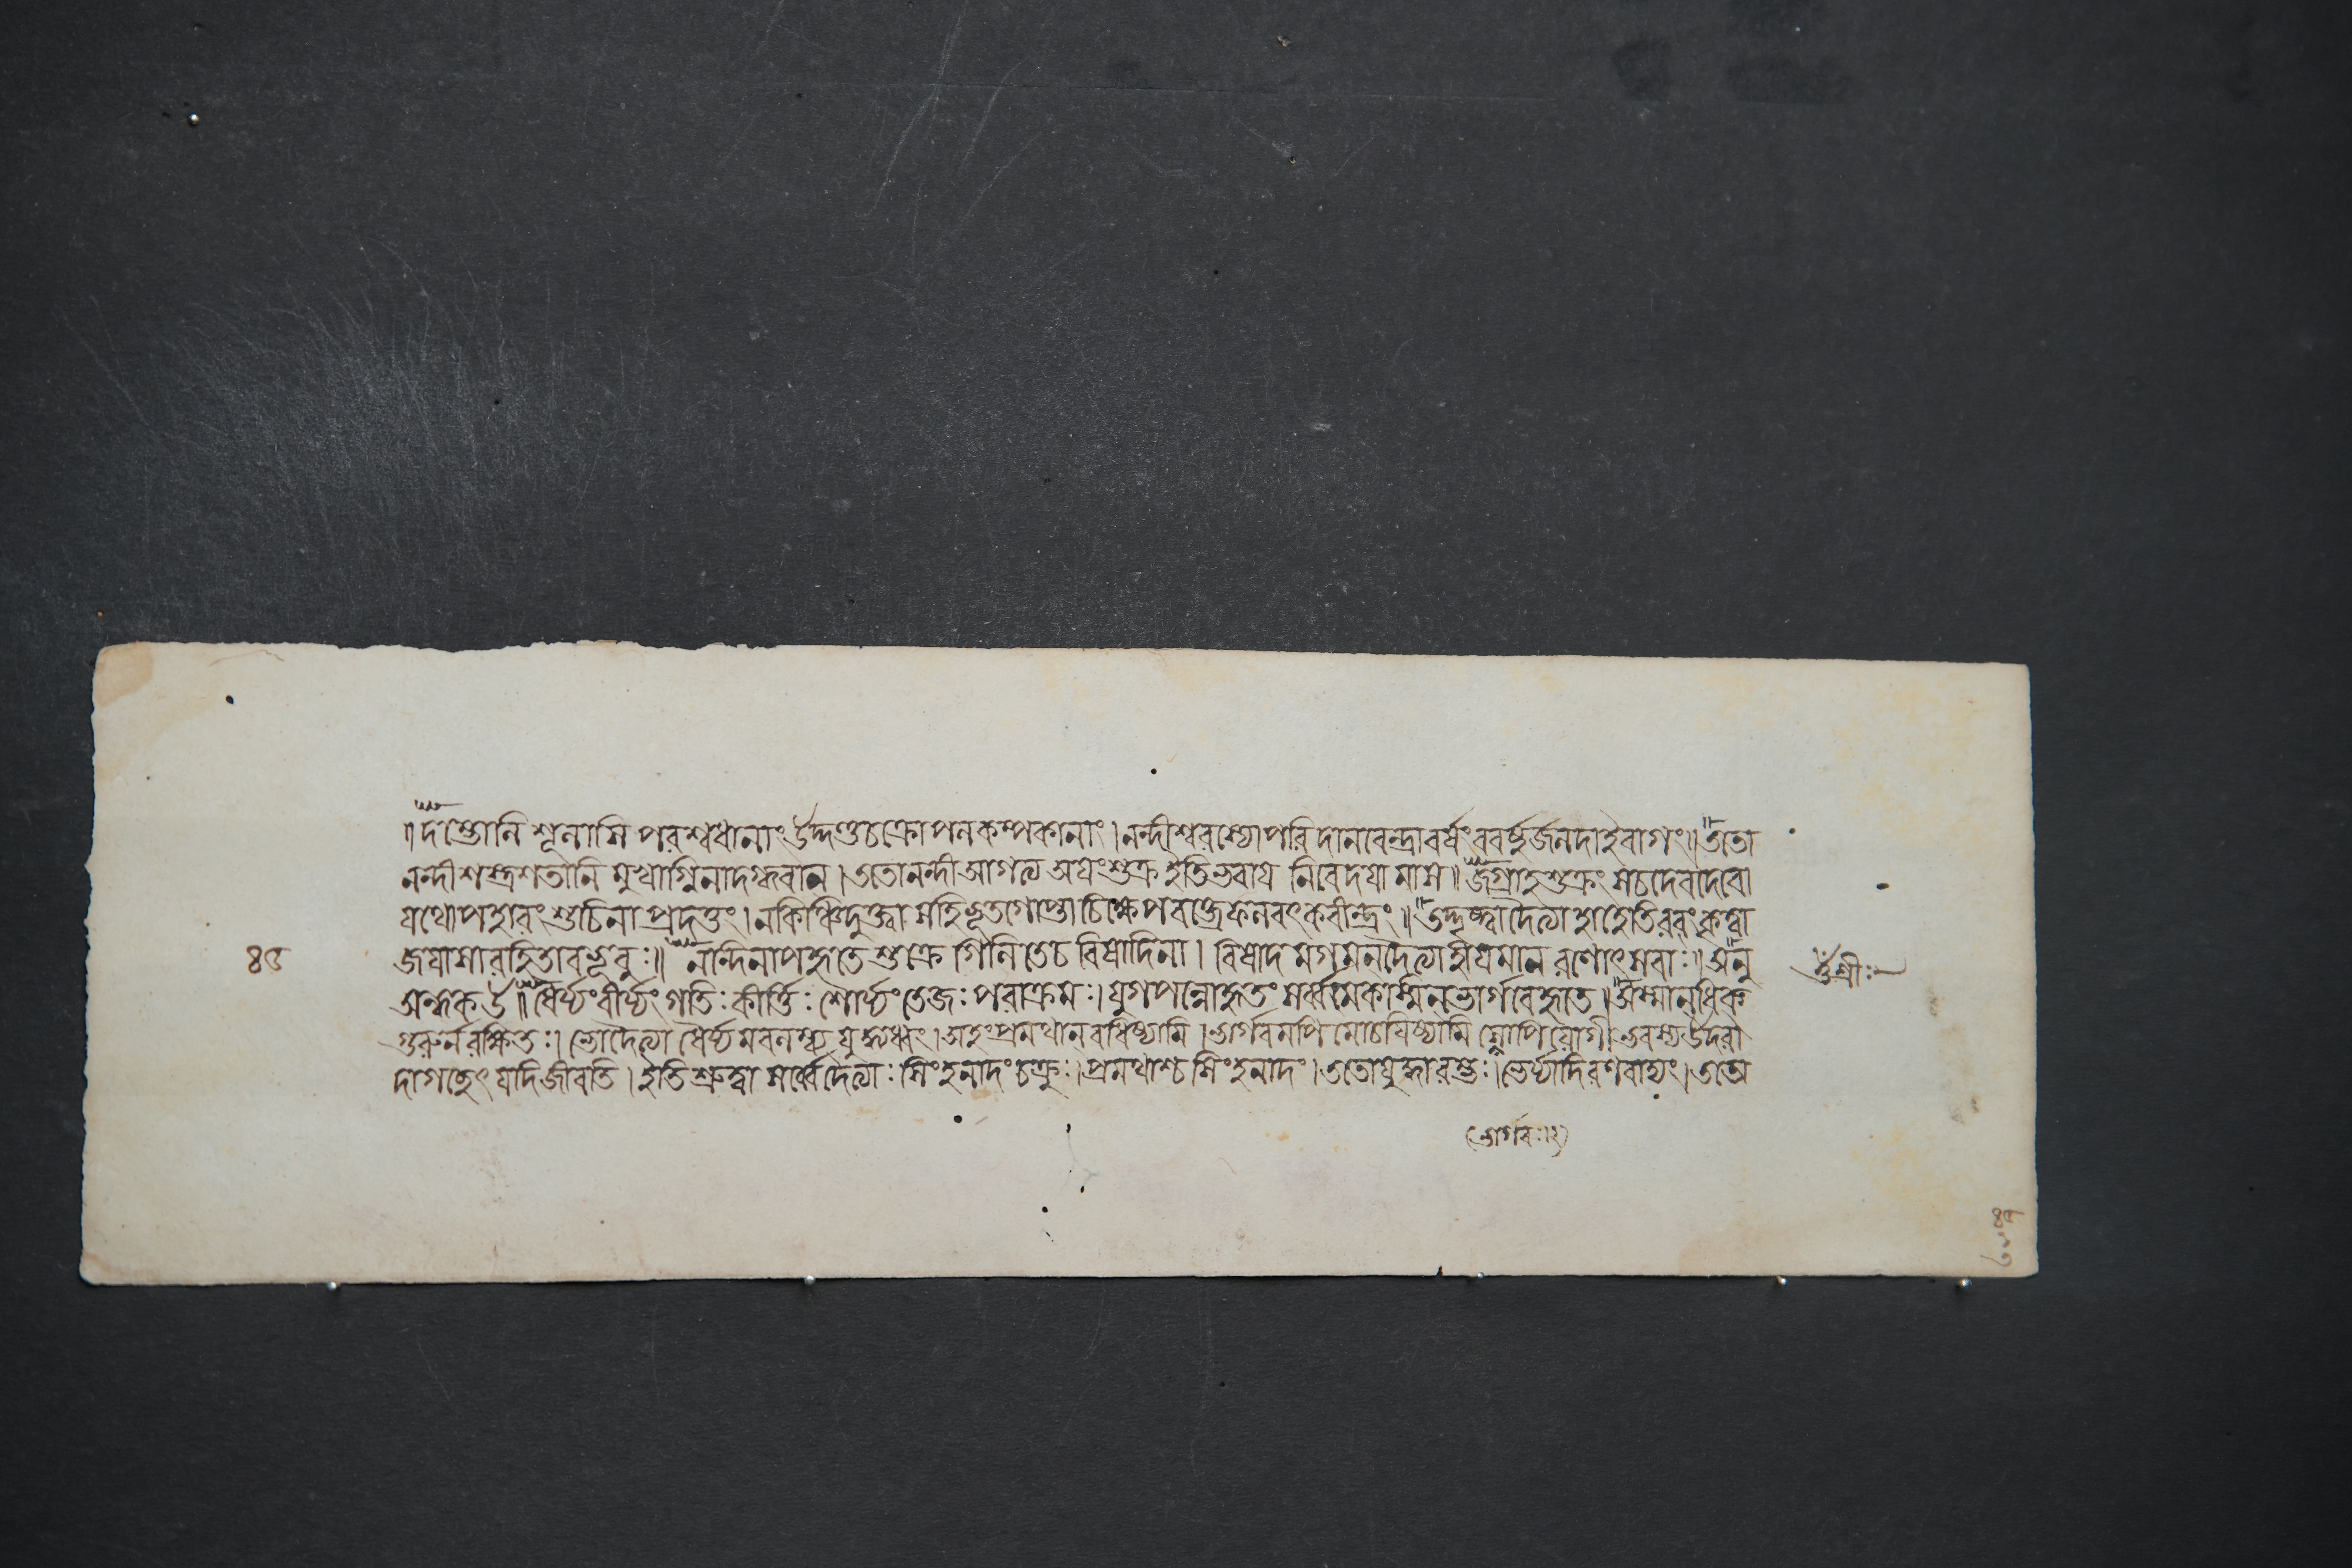 ॥দম্ভোলিশূলাসিপরশ্বধানাং উদ্দণ্ডচক্রোপলকম্পকানাং।নন্দীশ্বরস্যোপরিদানবেন্দ্রাবর্ষংববর্ষুর্জলদাইবাগং॥ততো
নন্দীশস্ত্রশতানি মুখাগ্নিনাদগ্ধবান।ততোনন্দীআগত্য অযংশুক্র ইতিভবায নিবেদযামাস॥জগ্রাহশুক্রং সচদেবদেবো
যথোপহারংশুচিনাপ্রদত্তং।নকিঞ্চিদুক্ত্বা সহিভূতগোপ্তাচিক্ষেপবক্ত্রেফলবৎকবীন্দ্রং॥তদ্দৃষ্ট্বাদৈত্যাহাহেতিরবংকৃত্বা
জযাশারহিতাবভূবুঃ॥নন্দিনাপহৃতেশুক্রে গিলিতেচবিষাদিনা।বিষাদমগমন্দৈত্যাহীযমানরণোৎসবাঃ॥অনু
৪৫
ওঁশ্রীঃ
অন্ধকউ॥ধৈর্য্যংবীর্য্যংগতিঃকীর্ত্তিঃ শৌর্য্যংতেজঃপরাক্রমঃ।যুগপন্নোহৃতংসর্ব্বমেকস্মিনভার্গবেহৃতে॥অস্মানধিক
গুরুর্নরক্ষিতঃ।ভোদৈত্যা ধৈর্য্যমবলম্ব্য যুদ্ধ্যধ্বং।অহংপ্রমথানবধিষ্যামি।ভার্গবমপিমোচযিষ্যামি সোপিযোগীভবস্যউদরা
দাগচ্ছেৎযদিজীবতি।ইতিশ্রুত্বাসর্ব্বেদৈত্যাঃসিংহনাদংচক্রুঃ।প্রমথাশ্চসিংহনাদং।ততোযুদ্ধারম্ভঃ।ভের্য্যাদিরণবাদ্যং।ততো
(ভার্গবঃ।২)